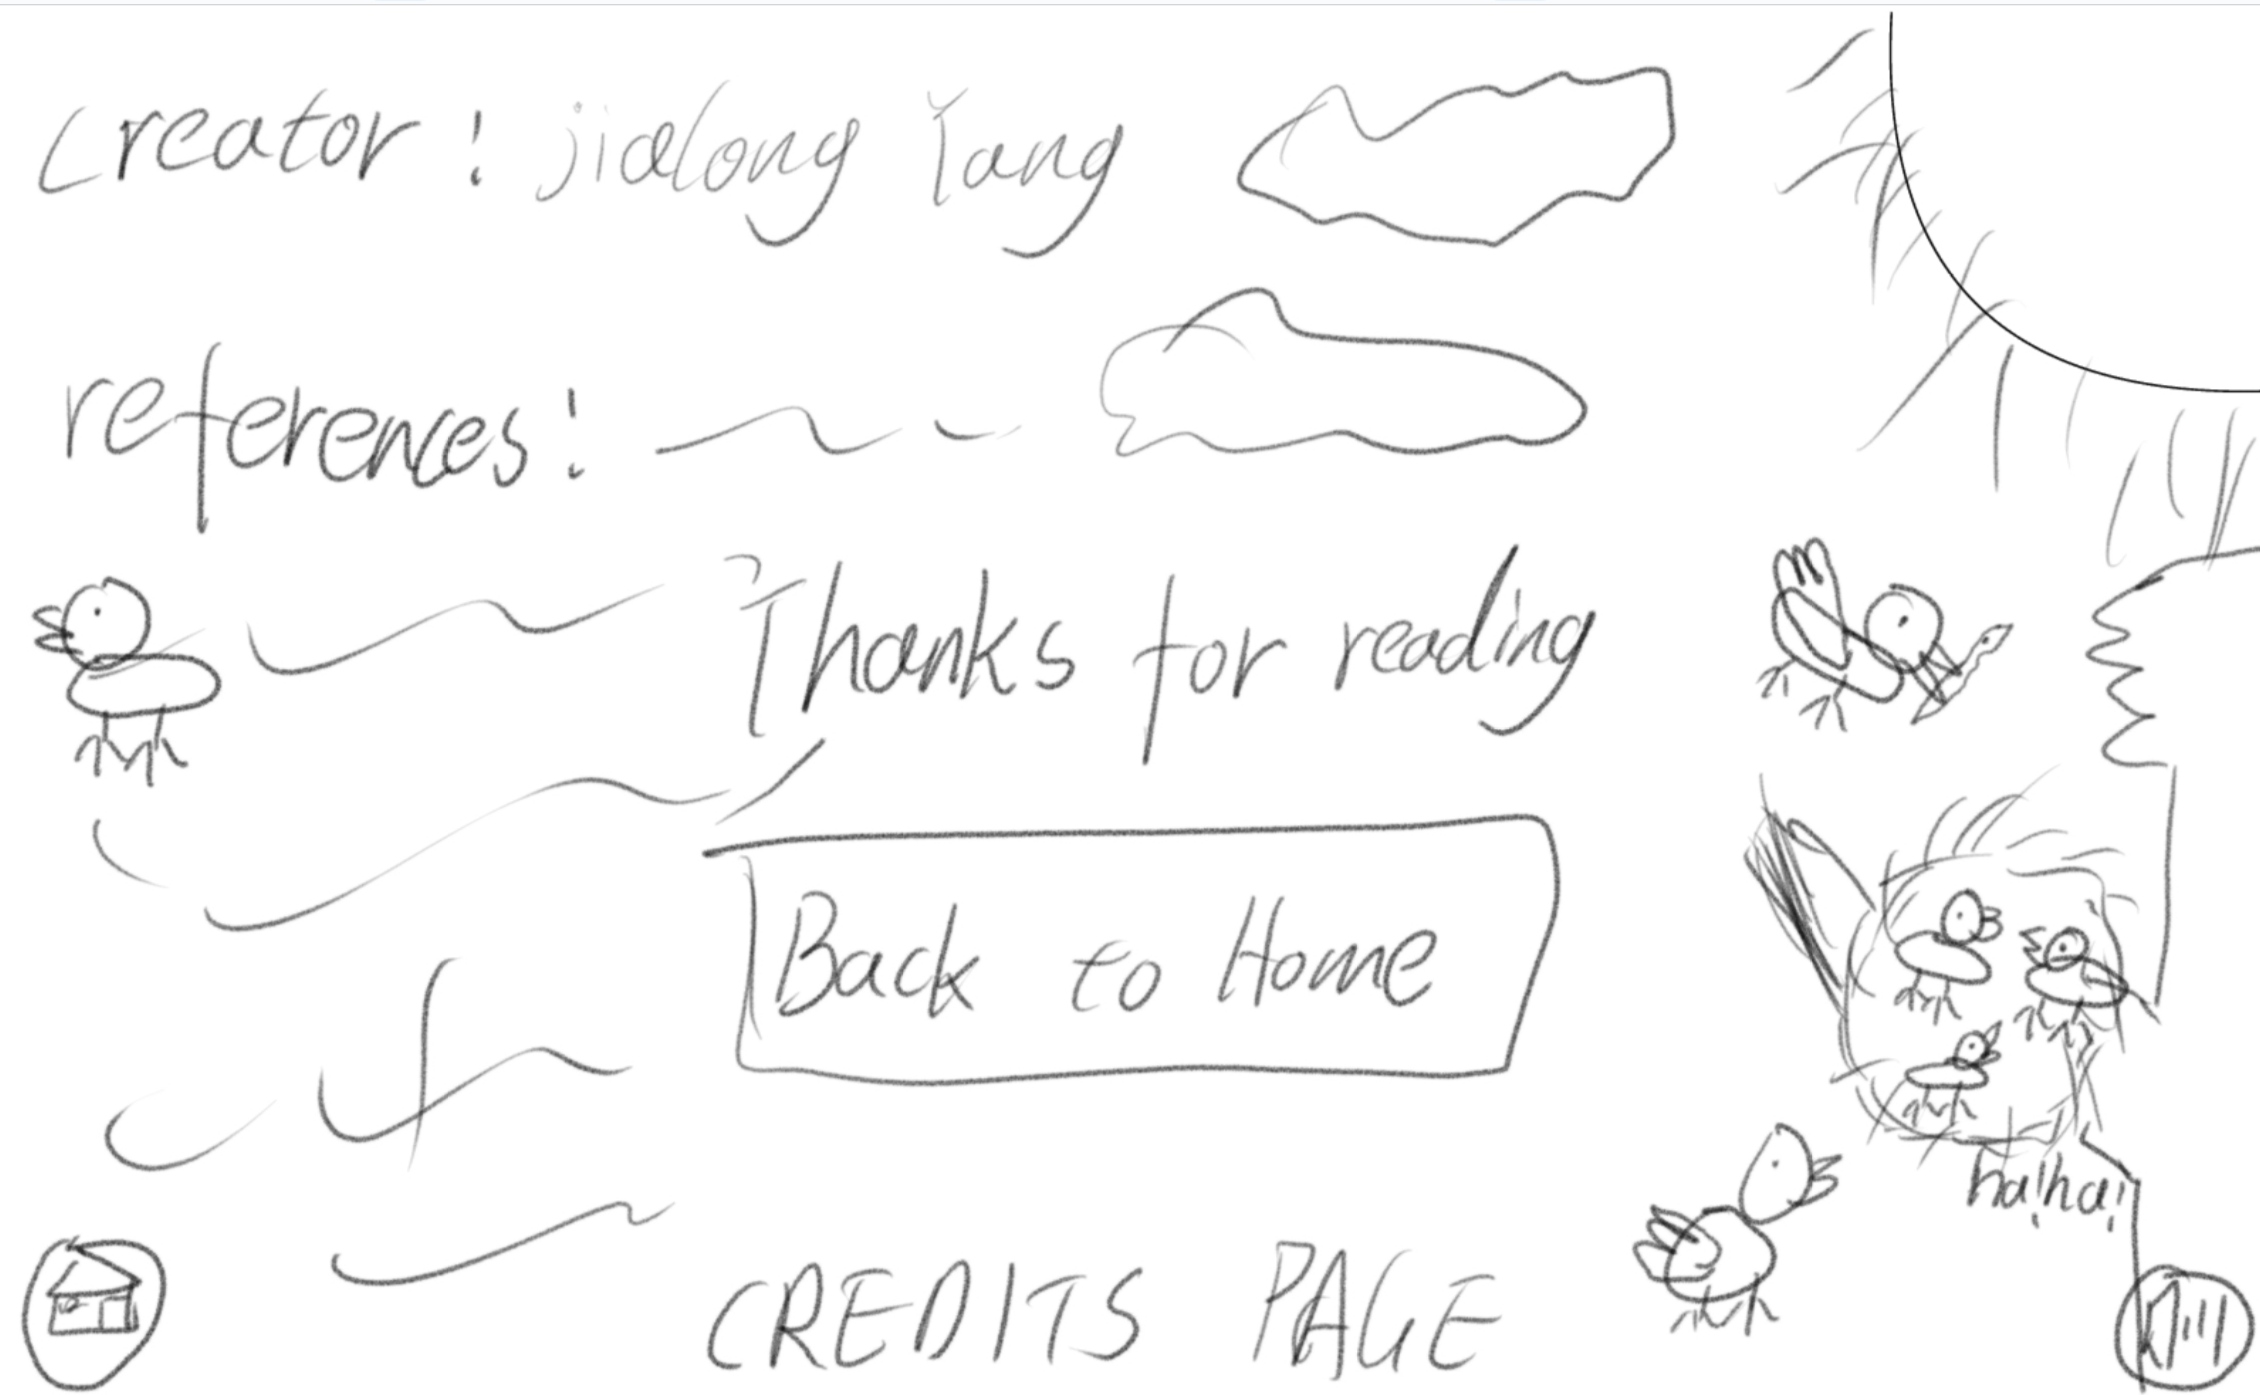 Creator: jialong Yang
references:
Thanks for reading
Back to Home
ha!ha!
CREDITS PAGE